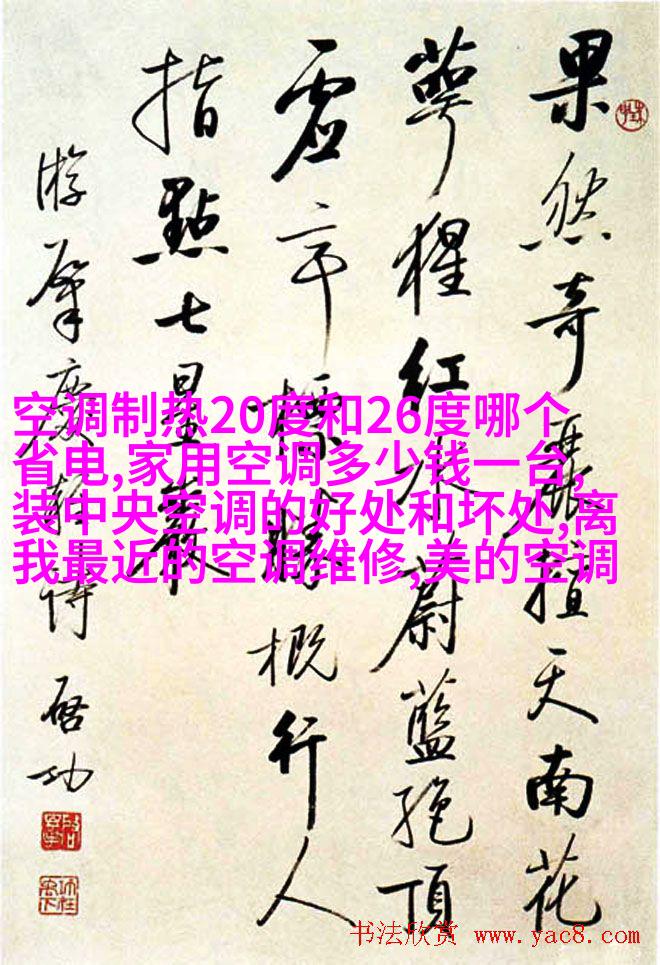 果然奇麗擅天南花
萼猩紅水蔚藍絶頂
虚亭標勝概行人
指點七星巖
游肇慶雜詩 啓功
空调制热20度和26度哪个
省电,家用空调多少钱一台,
装中央空调的好处和坏处,离
我最近的空调维修,美的空调
书法欣赏 www.yac8.com